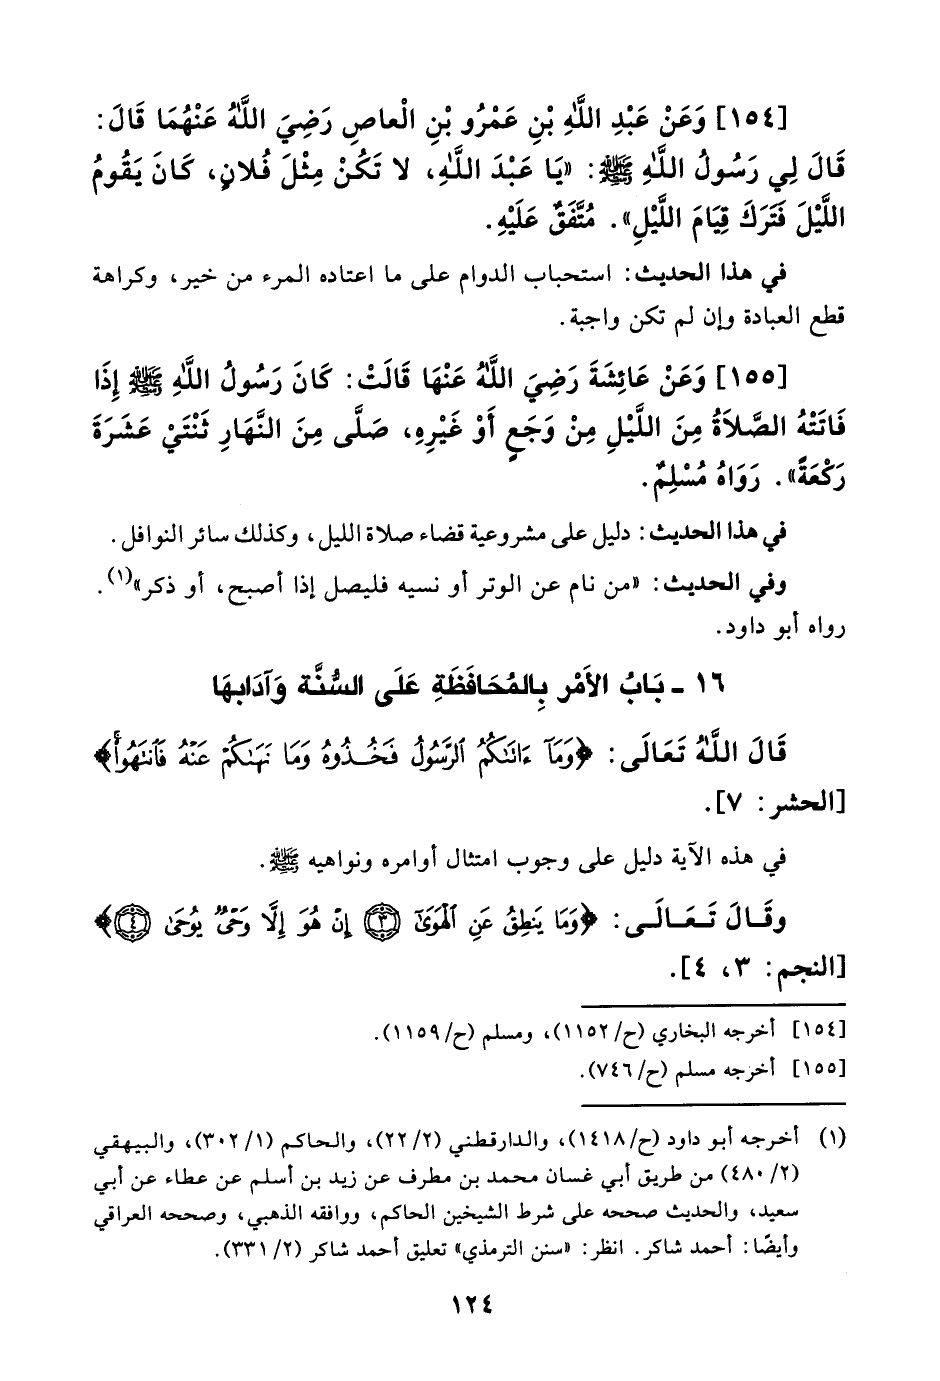 [١٥٤] وَعَنْ عَبْدِ اللَّهِ بْنِ عَمْرُو بْنِ الْعاصِ رَضِيَ اللَّهُ عَنْهُمَا قَالَ:
قَالَ لِي رَسُولُ اللَّهِ ﷺ: «يَا عَبْدَ اللَّهِ، لا تَكُنْ مِثْلَ فُلانٍ، كَانَ يَقُومُ
اللَّيْلَ فَتَرَكَ قِيَامَ اللَّيْلِ». مُتَّفَقٌ عَلَيْهِ.
في هذا الحديث: استحباب الدوام على ما اعتاده المرء من خير، وكراهة
قطع العبادة وإن لم تكن واجبة.
[١٥٥] وَعَنْ عَائِشَةَ رَضِيَ اللَّهُ عَنْهَا قَالَتْ: كَانَ رَسُولُ اللَّهِ ﷺ إِذَا
فَاتَتْهُ الصَّلاَةُ مِنَ اللَّيْلِ مِنْ وَجَعٍ أَوْ غَيْرِهِ، صَلَّى مِنَ النَّهَارِ ثْنَتَيْ عَشَرَةَ
رَكْعَةً». رَوَاهُ مُسْلِمٌ.
في هذا الحديث: دليل على مشروعية قضاء صلاة الليل، وكذلك سائر النوافل.
وفي الحديث: «من نام عن الوتر أو نسيه فليصل إذا أصبح، أو ذكر»(١).
رواه أبو داود.
١٦ - بَابُ الأَمْر بِالمُحَافَظَةِ عَلَى السُّنَّة وَآدَابهَا
قَالَ اللَّهُ تَعَالَى: ﴿وَمَآ ءَاتَىٰكُمُ ٱلرَّسُولُ فَخُـذُوهُ وَمَا نَهَىٰكُمْ عَنْهُ فَٱنتَهُوا۟ۚ﴾
[الحشر: ٧].
في هذه الآية دليل على وجوب امتثال أوامره ونواهيه ﷺ.
وقَـالَ تَـعَـالَـى: ﴿وَمَا يَنطِقُ عَنِ ٱلْهَوَىٰٓ ٣ إِنْ هُوَ إِلَّا وَحْىٌ يُوحَىٰ ٤﴾
[النجم: ٣، ٤].
[١٥٤] أخرجه البخاري (ح/١١٥٢)، ومسلم (ح/١١٥٩).
[١٥٥] أخرجه مسلم (ح/٧٤٦).
(١) أخرجه أبو داود (ح/١٤١٨)، والدارقطني (٢/٢٢)، والحاكم (١/ ٣٠٢)، والبيهقي
(٢/ ٤٨٠) من طريق أبي غسان محمد بن مطرف عن زيد بن أسلم عن عطاء عن أبي
سعيد، والحديث صححه على شرط الشيخين الحاكم، ووافقه الذهبي، وصححه العراقي
وأيضًا: أحمد شاكر. انظر: «سنن الترمذي» تعليق أحمد شاكر (٢/ ٣٣١).
١٢٤